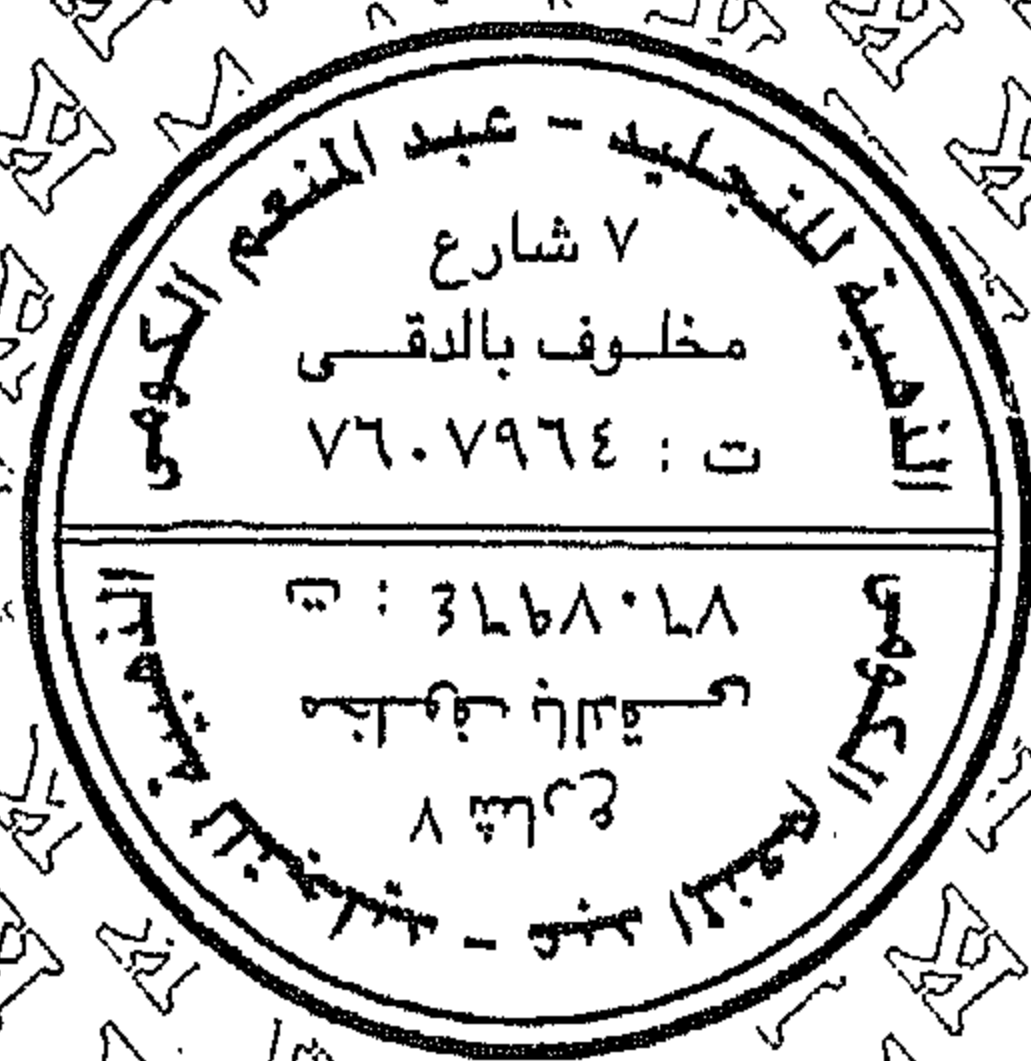 الذهبية للتجليد - عبد المنعم الكومى
٧ شارع
مخلوف بالدقى
ت : ٧٦٠٧٩٦٤
٧٦٠٧٩٦٤ : ت
مخلوف بالدقى
٧ شارع
الذهبية للتجليد - عبد المنعم الكومى